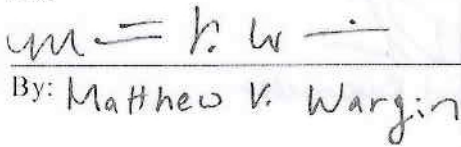 By: Matthew V. Wargin